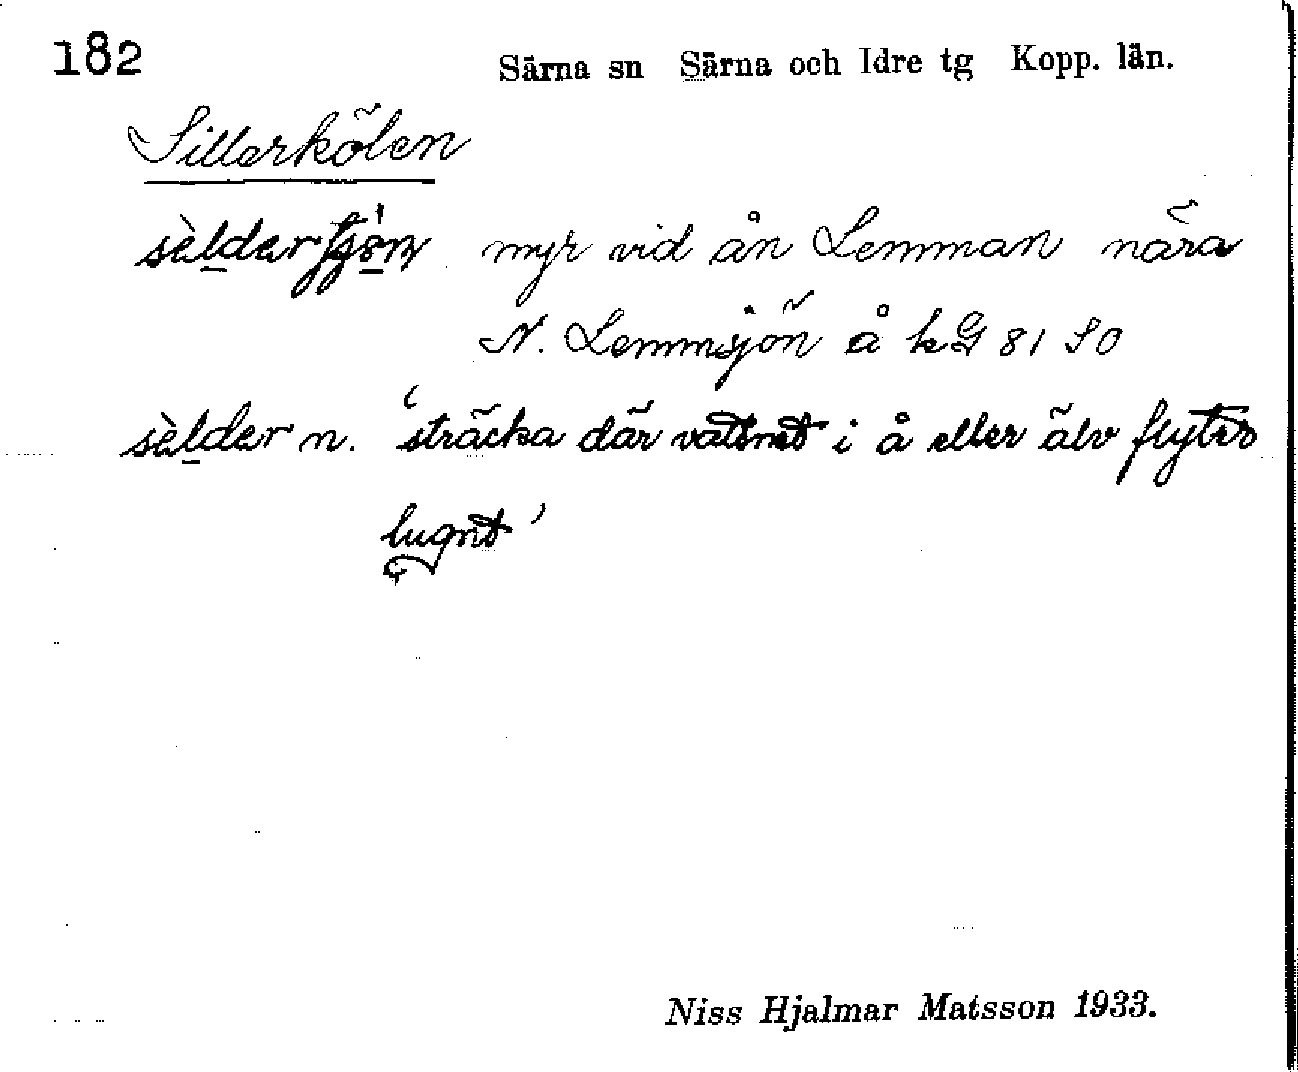 182
Särna sn Särna och Idre tg Kopp. län.
Sillerkölen
myr vid ån Lemman nära
N. Lemmsjön å kG 81 SO
sèlder n. 'sträcka där vattnet i å eller älv flyter
lugnt'
Niss Hjalmar Matsson 1933.